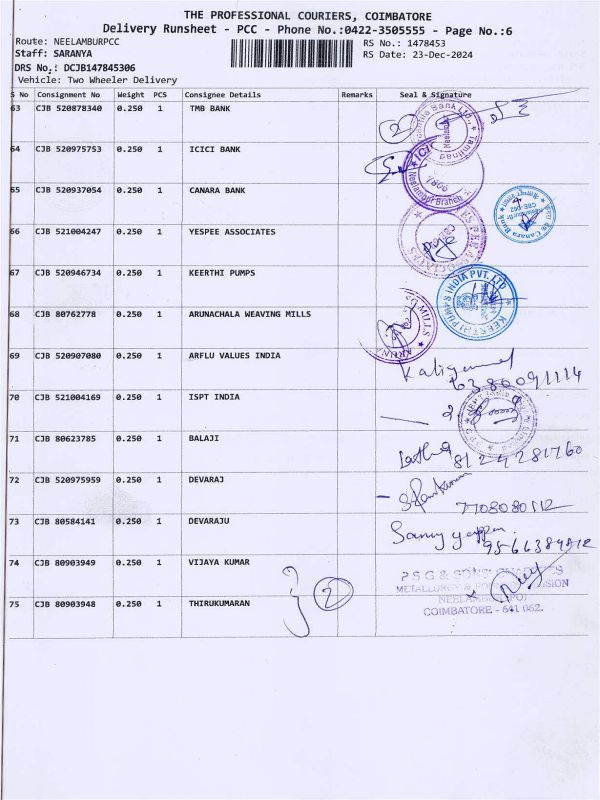 THE PROFESSIONAL COURIERS, COIMBATORE
Delivery Runsheet - PCC - Phone No.:0422-3505555 - Page No.:6
Route: NEELAMBURPCC RS No.: 1478453
Staff: SARANYA RS Date: 23-Dec-2024
DRS No,: DCJB147845306
Vehicle: Two Wheeler Delivery
S No Consignment No Weight PCS Consignee Details Remarks Seal & Signature
63 CJB 520878340 0.250 1 TMB BANK 2
64 CJB 520975753 0.250 1 ICICI BANK
Neelambur Branch
65 CJB 520937054 0.250 1 CANARA BANK
Canara Bank
66 CJB 521004247 0.250 1 YESPEE ASSOCIATES
67 CJB 520946734 0.250 1 KEERTHI PUMPS
KEERTHI PUMPS INDIA PVT. LTD
68 CJB 80762778 0.250 1 ARUNACHALA WEAVING MILLS
MILLS
69 CJB 520907080 0.250 1 ARFLU VALUES INDIA
6380091114
70 CJB 521004169 0.250 1 ISPT INDIA
71 CJB 80623785 0.250 1 BALAJI
8124281760
72 CJB 520975959 0.250 1 DEVARAJ
7708080512
73 CJB 80584141 0.250 1 DEVARAJU
74 CJB 80903949 0.250 1 VIJAYA KUMAR
P S G & SONS'
METALLURGY &
75 CJB 80903948 0.250 1 THIRUKUMARAN 2
COIMBATORE - 641 062.